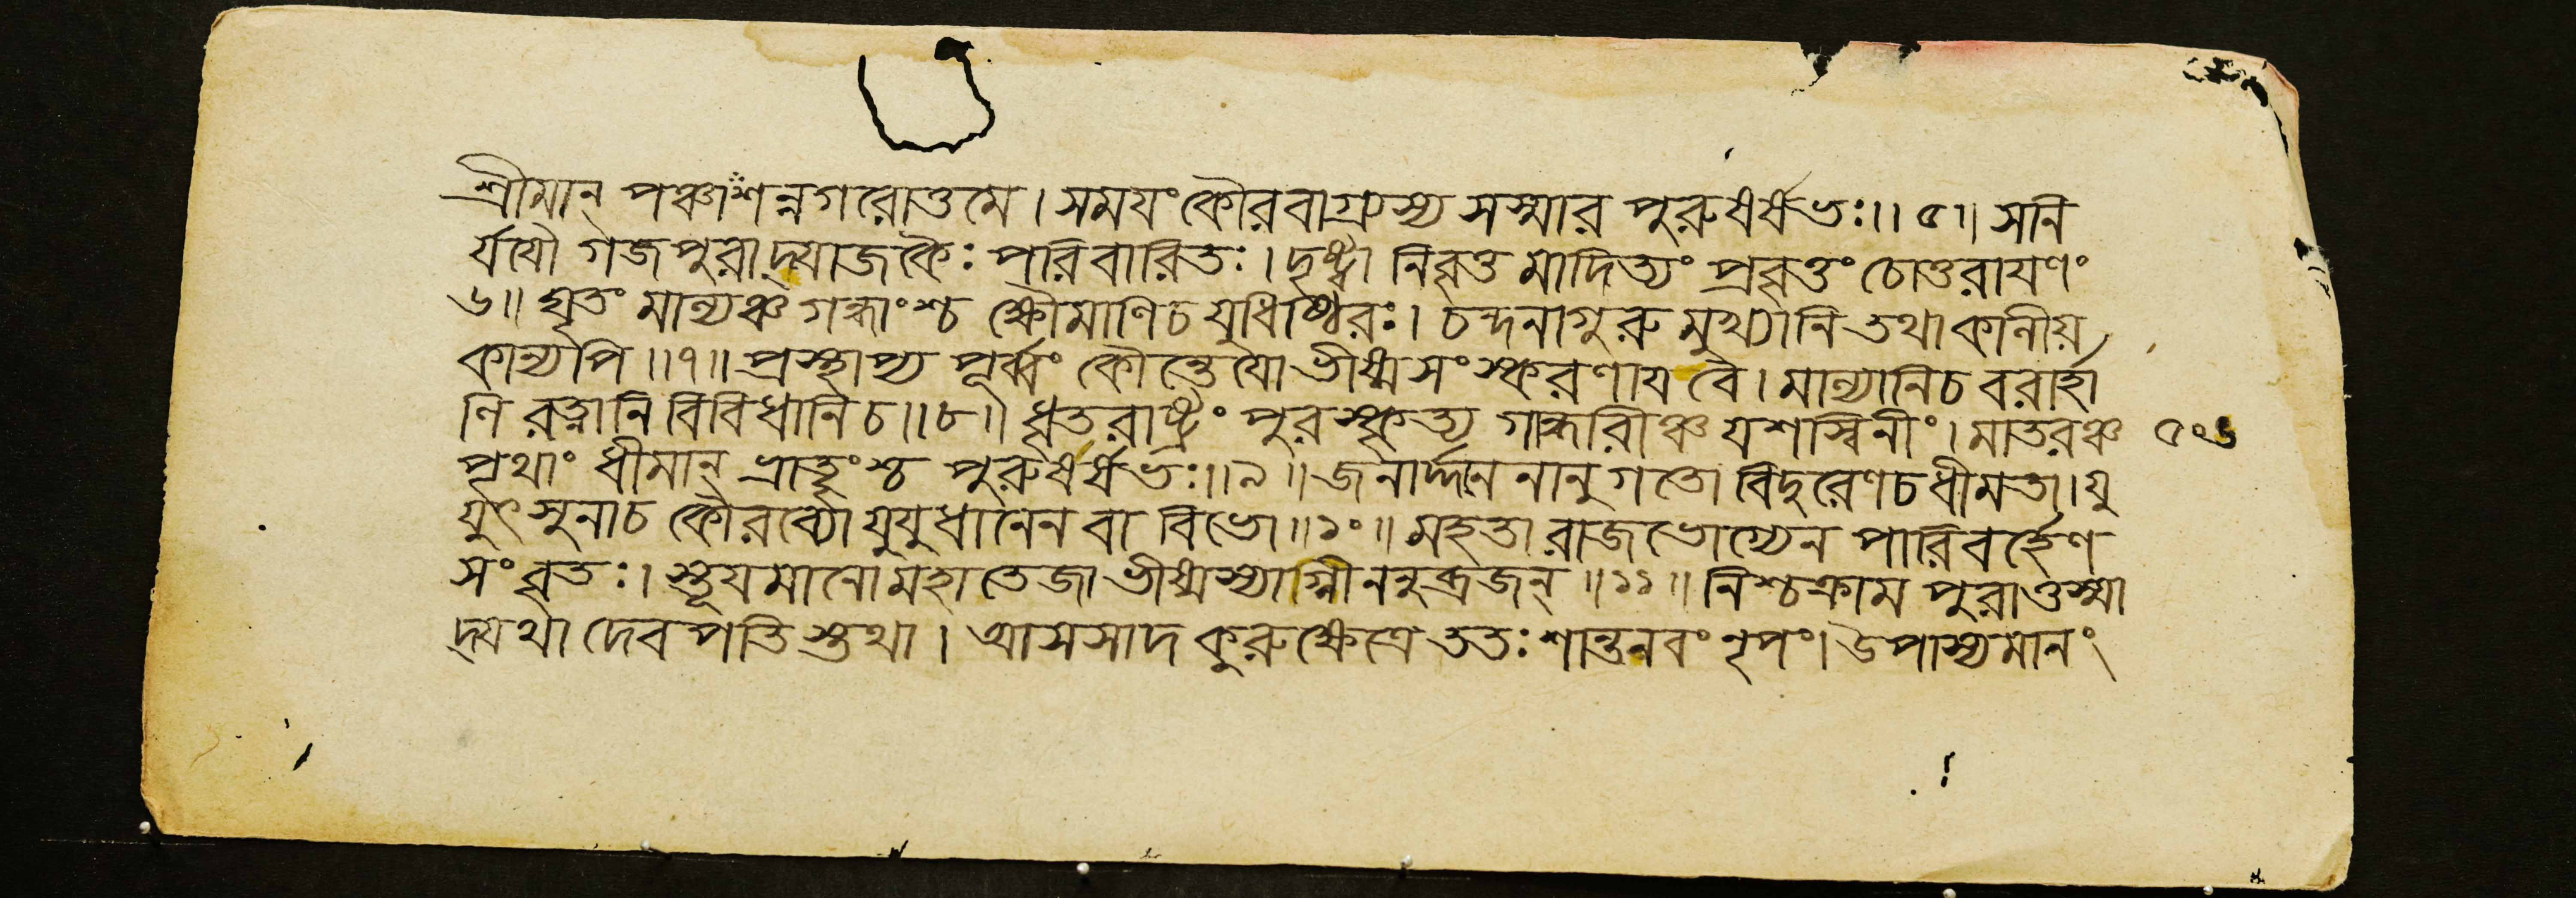 শ্রীমান্ পঞ্চাশন্নগরোত্তমে। সময়ং কৌরবাগ্র্যস্য সস্মার পুরুষর্ষভঃ।। ৫।। সনি
র্যযৌ গজপুরাদ্যাজকৈঃ পরিবারিতঃ। দৃষ্ট্বা নিবৃত্তমাদিত্যং প্রবৃত্তং চোত্তরায়ণং
৬।। ঘৃতং মাল্যঞ্চ গন্ধাংশ্চ ক্ষৌমাণিচ যুধিষ্ঠিরঃ। চন্দনাগুরুমুখ্যানি তথা কালীয়
কান্যপি ।।৭।। প্রস্থাপ্য পূর্ব্বং কৌন্তেয়ো ভীষ্মসংস্করণায় বৈ। মাল্যানিচ বরার্হা
ণি রত্নানি বিবিধানি চ।।৮।। ধৃতরাষ্ট্রং পুরস্কৃত্য গান্ধারীঞ্চ যশস্বিনীং। মাতরঞ্চ ৫০৬
পৃথাং ধীমান্ ভ্রাতৄংশ্চ পুরুষর্ষভঃ।।৯।। জনার্দ্দনেনানুগতো বিদুরেণচ ধীমতা। যু
যুৎসুনাচ কৌরব্যো যুযুধানেন বা বিভো।।১০।। মহতা রাজভোগ্যেন পারিবর্হেণ
সংবৃতঃ। স্তূয়মানো মহাতেজা ভীষ্মস্যাগ্নীননুব্রজন্ ।।১১।। নিশ্চক্রাম পুরাত্তস্মা
দ্যথা দেবপতিস্তথা। আসসাদ কুরুক্ষেত্রে ততঃ শান্তনবং নৃপং। উপাস্যমানং